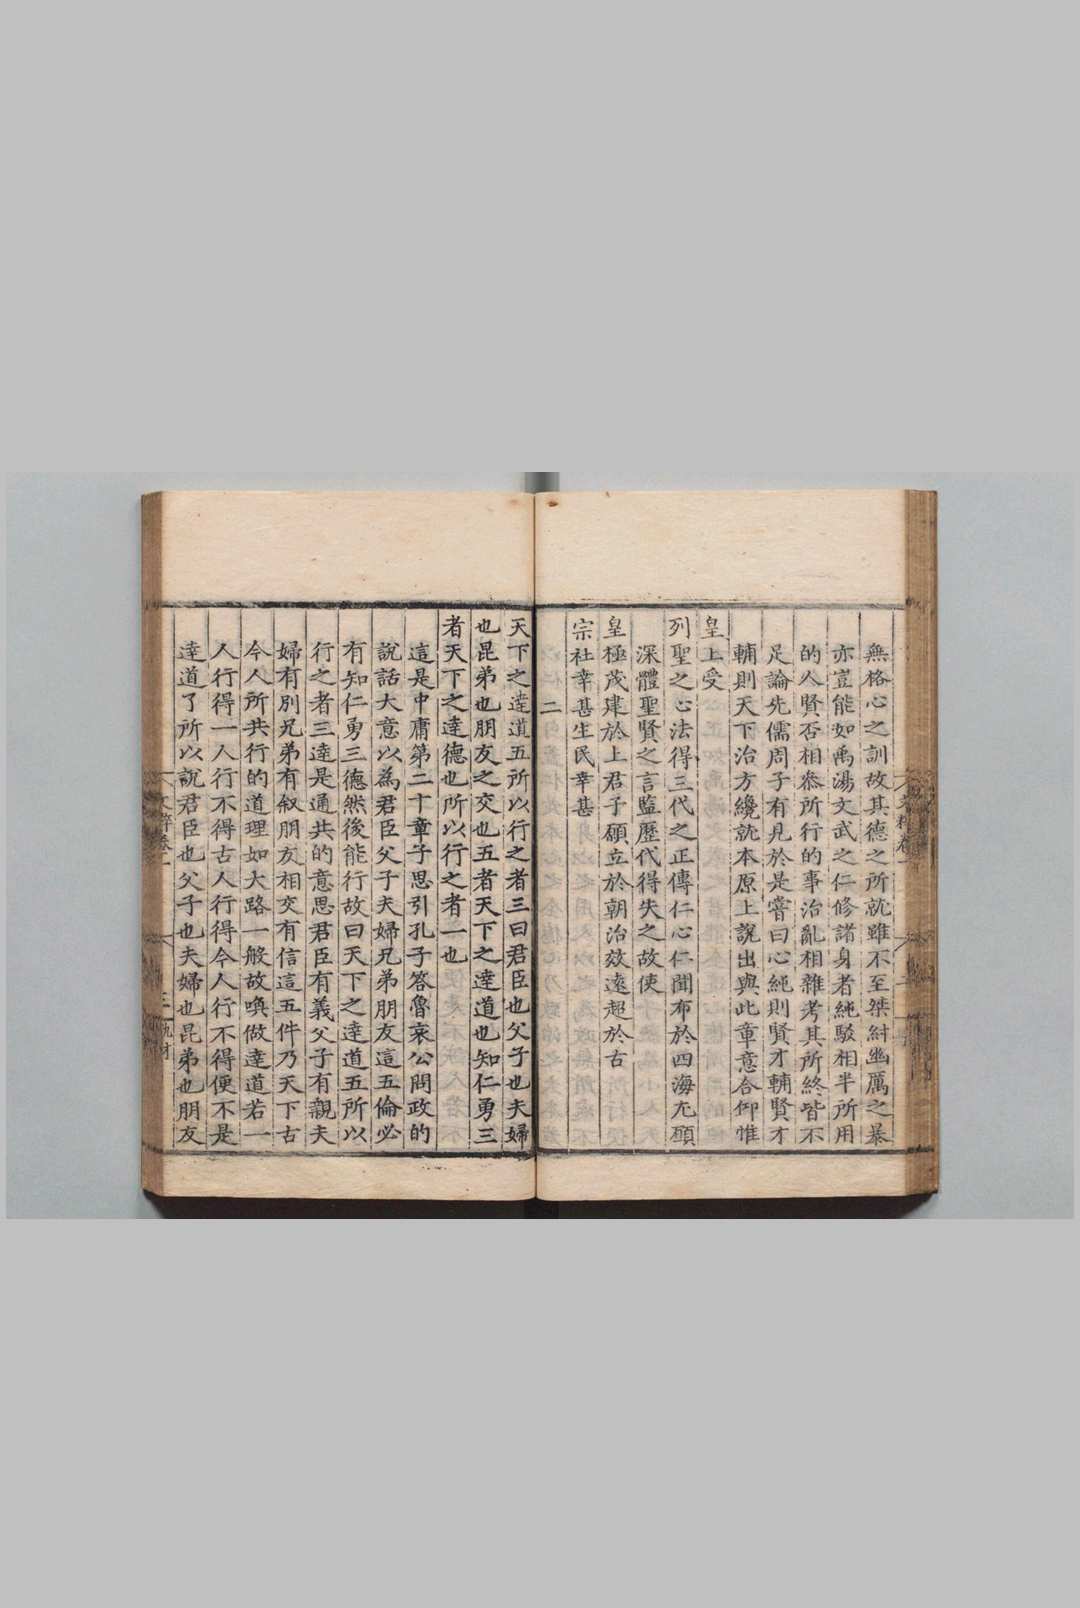 無格心之訓故其德之所就雖不至桀紂幽厲之暴
亦豈能如禹湯文武之仁修諸身者純駁相半所用
的人賢否相叅所行的事治亂相雜考其所終皆不
足論先儒周子有見於是嘗曰心純則賢才輔賢才
輔則天下治方纔就本原上說出與此章意合仰惟
皇上受
列聖之心法得三代之正傳仁心仁聞布於四海尤願
深體聖賢之言監歷代得失之故使
皇極茂建於上君子願立於朝治效遠超於古
宗社幸甚生民幸甚
二
天下之達道五所以行之者三曰君臣也父子也夫婦
也昆弟也朋友之交也五者天下之達道也知仁勇三
者天下之達德也所以行之者一也
這是中庸第二十章子思引孔子答魯哀公問政的
說話大意以為君臣父子夫婦兄弟朋友這五倫必
有知仁勇三德然後能行故曰天下之達道五所以
行之者三達是通共的意思君臣有義父子有親夫
婦有別兄弟有叙朋友相交有信這五件乃天下古
今人所共行的道理如大路一般故喚做達道若一
人行得一人行不得古人行得今人行不得便不是
達道了所以說君臣也父子也夫婦也昆弟也朋友
文粹卷一
三